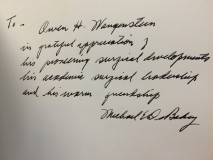 To - Owen H. Wangensteen
in grateful appreciation of
his pioneering surgical developments
his academic surgical leadership
and his warm friendship
Michael E. DeBakey